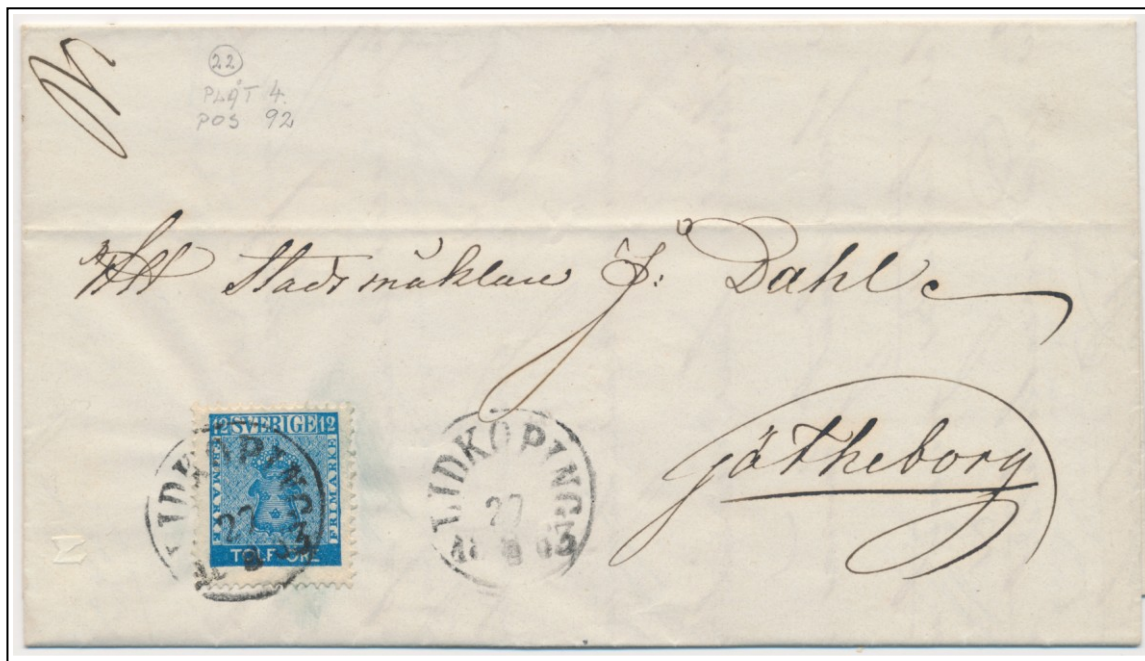 22
PLÅT 4.
POS 92
Stadsmäklaren J: Dahl.
Götheborg
12 SVERIGE 12
FRIMÄRKE
FRIMÄRKE
TOLF ÖRE
LIDKÖPING
27
LIDKÖPING
27